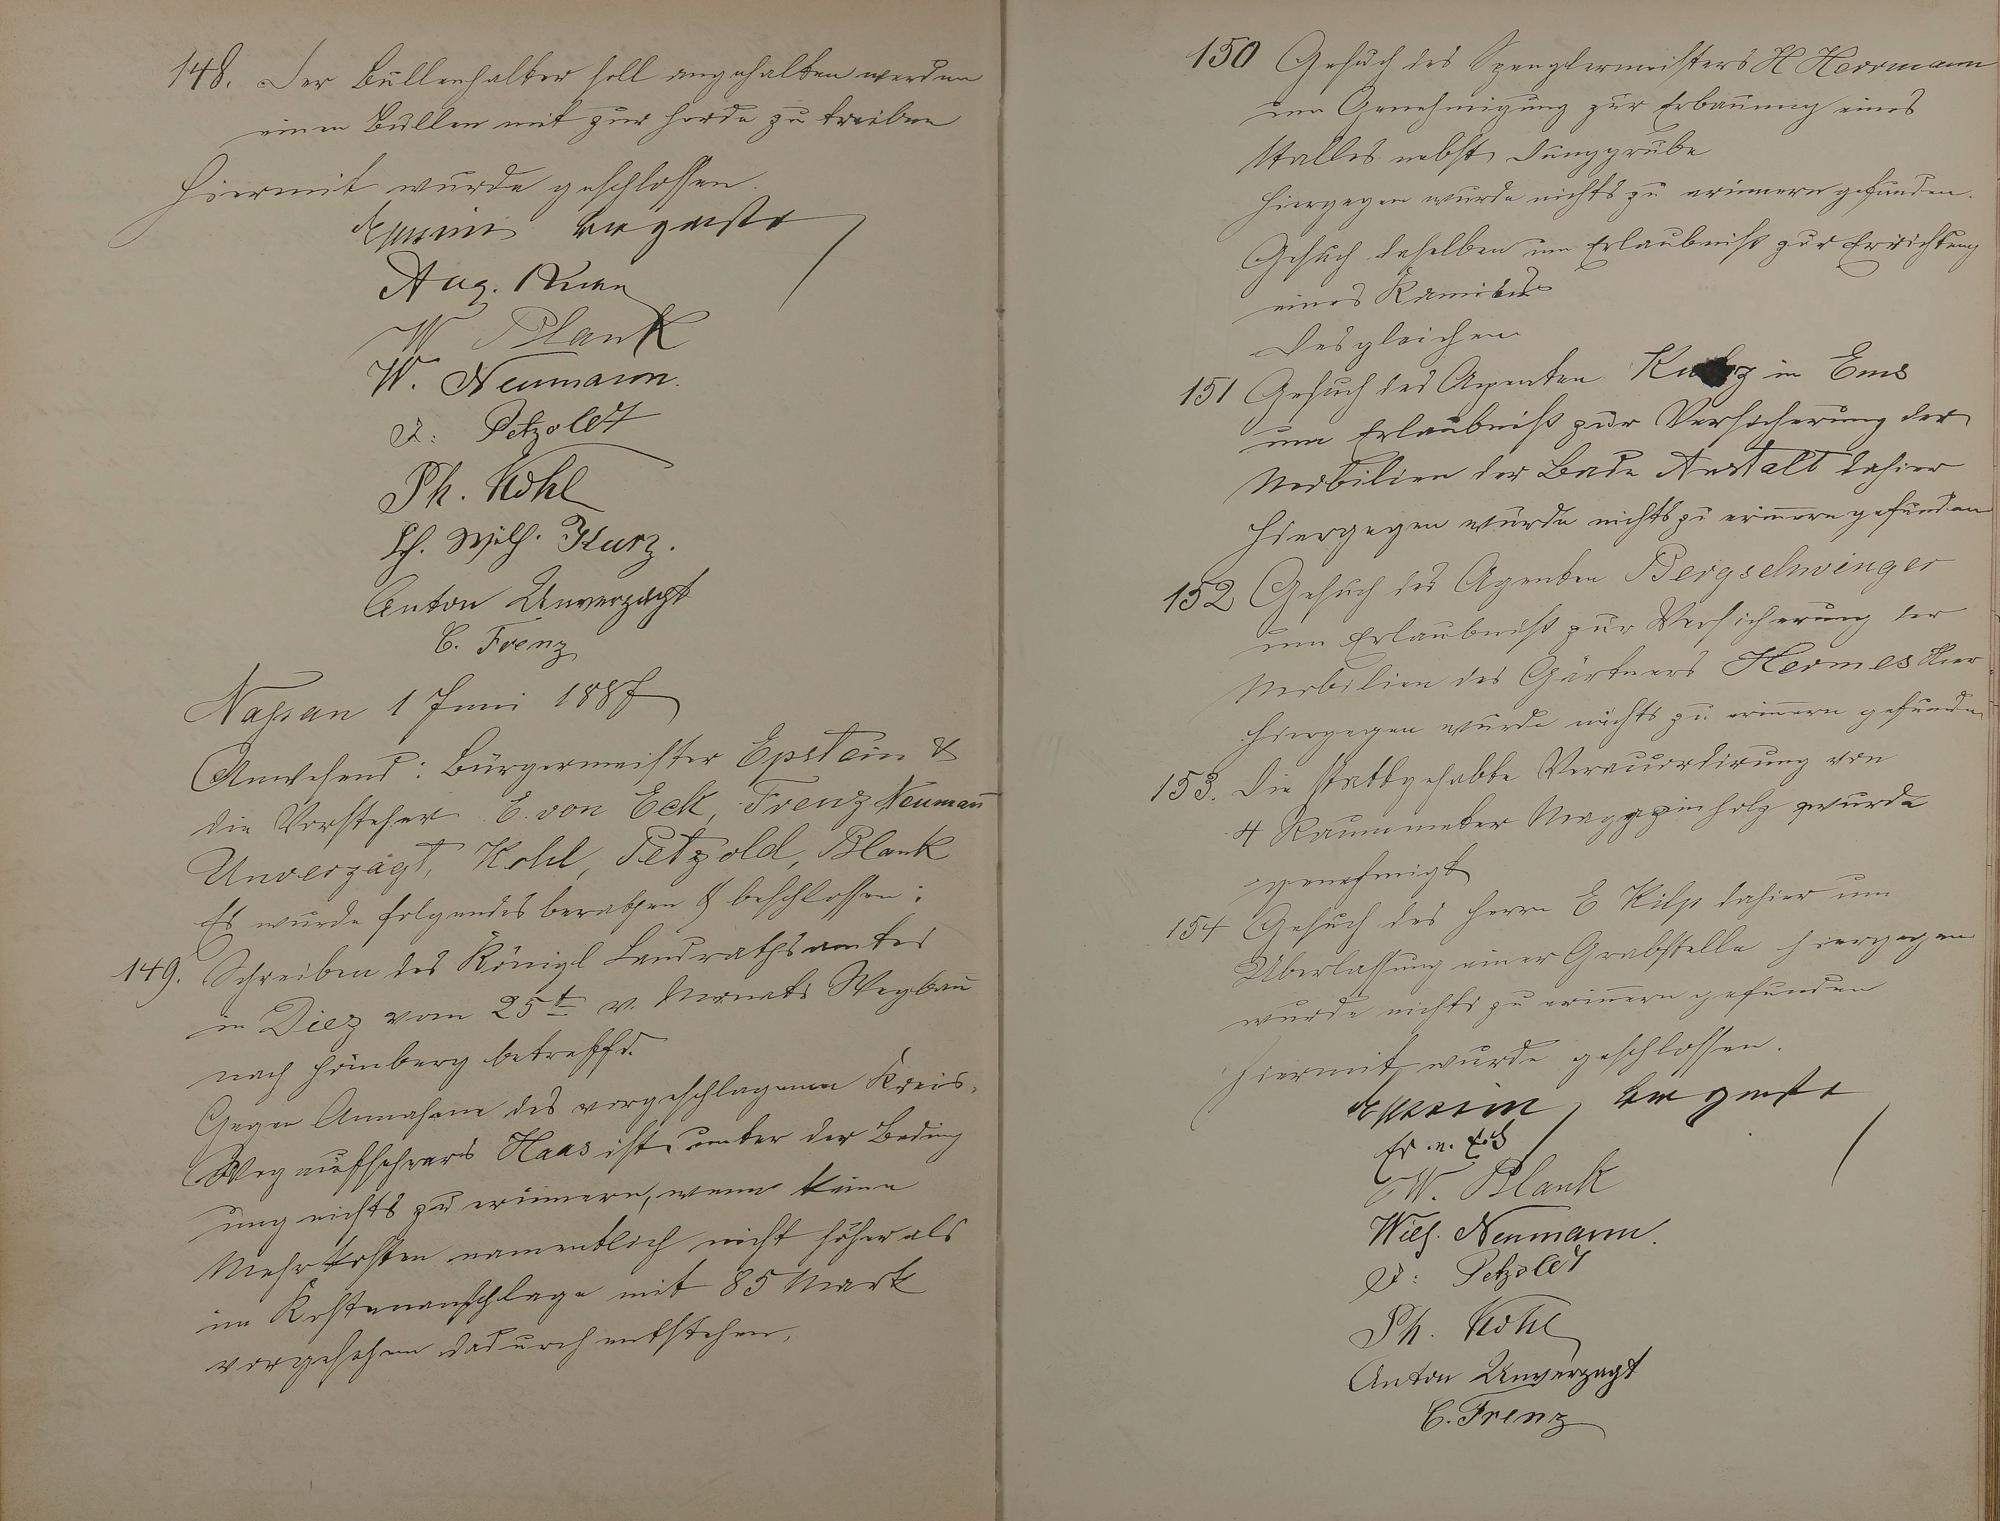 148. Der Bullenhalter soll angehalten werden
einen Bullen mit zur Herde zu treiben
Hiermit wurde geschlossen.
Epstein Bürgerstr
Aug.
W Blank
W. Neumann.
J: Petzoldt
Ph. Kohl
Ph. Wilh. Kurz.
Anton Unverzagt
C. Frenz
Nassau 1 Juni 1887
Anwesend: Bürgermeister Epstein &
die Vorsteher E. von Eck, Frenz Neumann
Unverzagt, Kohl, Petzold, Blank
Es wurde folgendes berathen & beschlossen:
149. Schreiben des Königl Landrathsamtes
in Diez vom 25t v. Monats Wegbau
nach Hömberg betreffd.
Gegen Annahme des vorgeschlagenen Kreis-
Wegaufsehers Haas ist unter der Beding
ung nichts zu erinnern, wenn keine
Mehrkosten namentlich nicht höher als
im Kostenanschlage mit 85 Mark
vorgesehen dadurch entstehen.
150 Gesuch des Spenglermeisters H Herrmann
um Genehmigung zur Erbauung eines
Stalles nebst Dunggrube
Hiergegen wurde nichts zu erinnern gefunden.
Gesuch desselben um Erlaubniß zur Errichtung
eines Kamines
Desgleichen
151 Gesuch des Agenten in Ems
um Erlaubniß zur Versicherung der
Mobilien der Bade Anstalt dahier
Hiergegen wurde nichts zu erinnern gefunden
152 Gesuch des Agenten Bergschwinger
um Erlaubniß zur Versicherung der
Mobilien des Gärtners Hermes hier
Hiergegen wurde nichts zu erinnern gefunden
153. Die stattgehabte Verauordirung von
4 Raummeter Magazinholz wurde
genehmigt
154 Gesuch des Herrn E Kilp dahier um
Überlassung einer Grabstelle hiergegen
wurde nichts zu erinnern gefunden
Hiermit wurde geschlossen.
Epstein, Bürgerstr
Ed. v. Eck
W. Blank
Wilh. Neumann.
J: Petzoldt
Ph. Kohl
Anton Unverzagt
C. Frenz